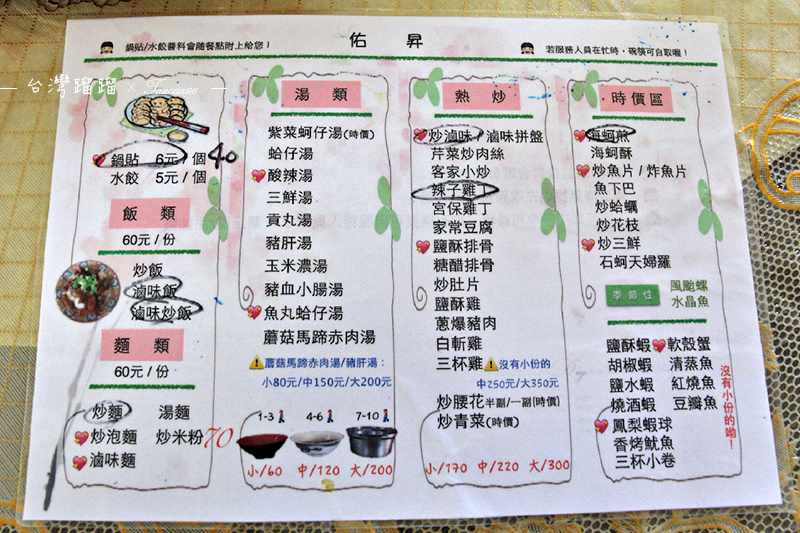 佑昇
鍋貼/水餃醬料會隨餐點附上給您!
若服務人員在忙時,碗筷可自取喔!
台灣蹓蹓 × Taiwan66
鍋貼 6元/個 40
水餃 5元/個
飯類
60元/份
炒飯
滷味飯
滷味炒飯
麵類
60元/份
炒麵 湯麵
炒泡麵 炒米粉 70
滷味麵
湯類
紫菜蚵仔湯(時價)
蛤仔湯
酸辣湯
三鮮湯
貢丸湯
豬肝湯
玉米濃湯
豬血小腸湯
魚丸蛤仔湯
蘑菇馬蹄赤肉湯
蘑菇馬蹄赤肉湯/豬肝湯:
小80元/中150元/大200元
1-3 4-6 7-10
小/60 中/120 大/200
熱炒
炒滷味/滷味拼盤
芹菜炒肉絲
客家小炒
辣子雞丁
宮保雞丁
家常豆腐
鹽酥排骨
糖醋排骨
炒肚片
鹽酥雞
蔥爆豬肉
白斬雞
三杯雞 沒有小份的
中250元/大350元
炒腰花半副/一副(時價)
炒青菜(時價)
小/170 中/220 大/300
時價區
海蚵煎
海蚵酥
炒魚片/炸魚片
魚下巴
炒蛤蠣
炒花枝
炒三鮮
石蚵天婦羅
季節性 風颱螺
水晶魚
鹽酥蝦 軟殼蟹
胡椒蝦 清蒸魚
鹽水蝦 紅燒魚
燒酒蝦 豆瓣魚
鳳梨蝦球
香烤魷魚
三杯小卷
沒有小份的呦!